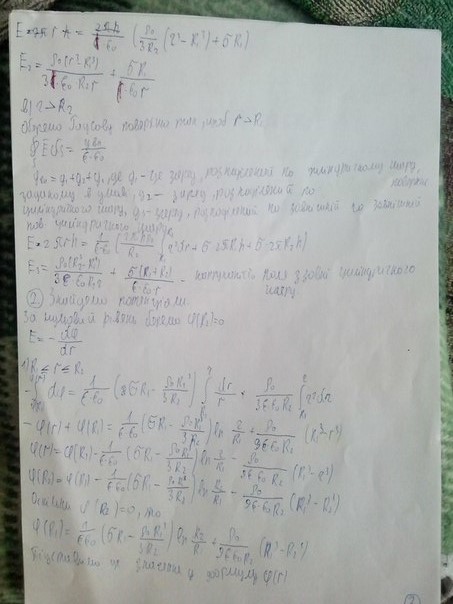 E·2πrh = 2πh/εε₀ (ρ₀/3R₂ (r³-R₁³) + σR₁)
E₂ = ρ₀(r³-R₁³)/3εε₀R₂r + σR₁/εε₀r
в) r > R₂
Оберемо Гаусову поверхню так, щоб r > R₂
∮EdS = qвн/εε₀
qвн = q₁+q₂+q₃, де q₁ - це заряд, розподілений по циліндричному шару,
заданому в умові, q₂ - заряд, розподілений по поверхні
циліндричного шару, q₃ - заряд, розподілений по зовнішній
пов. циліндричного шару
E·2πrh = 1/εε₀ (2πhρ₀/R₂ ∫r²dr + σ2πR₁h + σ·2πR₂h)
E₃ = ρ₀(R₂³-R₁³)/3εε₀R₂r + σ(R₁+R₂)/εε₀r - напруженість поля ззовні циліндричного
шару
② Знайдемо потенціали
За нульовий рівень беремо φ(R₂)=0
E = -dφ/dr
1) R₁ ≤ r ≤ R₂
-∫dφ = 1/εε₀ (σR₁ - ρ₀R₁³/3R₂) ∫dr/r + ρ₀/3εε₀R₂ ∫r²dr
-φ(r)+φ(R₁) = 1/εε₀ (σR₁ - ρ₀R₁³/3R₂) ln r/R₁ + ρ₀/9εε₀R₂ (R₁³-r³)
φ(r) = φ(R₁) - 1/εε₀ (σR₁ - ρ₀R₁³/3R₂) ln r/R₁ - ρ₀/9εε₀R₂ (R₁³-r³)
φ(R₂) = φ(R₁) - 1/εε₀ (σR₁ - ρ₀R₁³/3R₂) ln R₂/R₁ - ρ₀/9εε₀R₂ (R₁³-R₂³)
Оскільки φ(R₂)=0, то
φ(R₁) = 1/εε₀ (σR₁ - ρ₀R₁³/3R₂) ln R₂/R₁ + ρ₀/9εε₀R₂ (R₁³-R₂³)
Підставимо це значення у формулу φ(r)